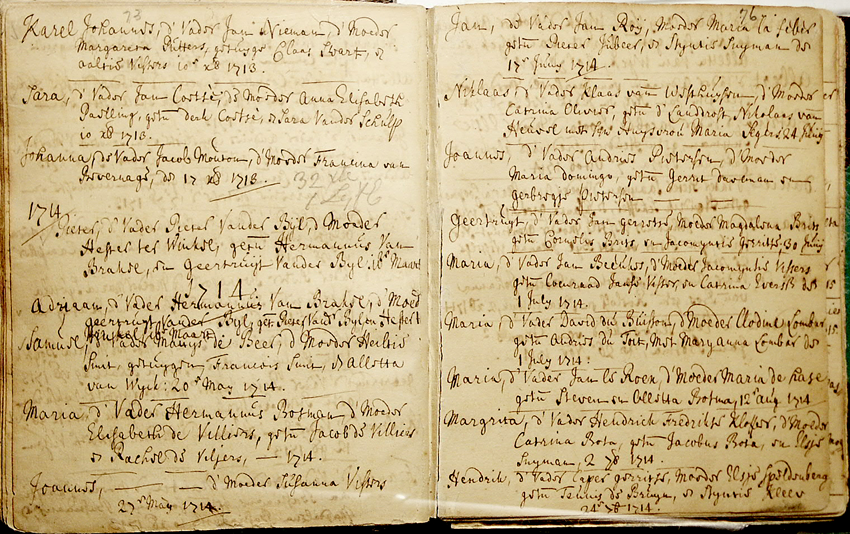 23
Karel Johannes, d' Vader Jan Nieman, d' Moeder
Margareta Putters, getuyge Claas Swart, en
aaltie Vissers 10 xb 1713.
Sara, d' Vader Jan Coetse, de Moeder Anna Elisabeth
getn derk Coetse, en Sara Vander Schulp
10 xb 1713.
Johanna, de Vader Jacob Mouton, d' Moeder Francina van
Bevernage, de 17 xb 1713.
32
1714
Pieter, d' Vader Pieter Vander Byl, d Moeder
Hester ter Winkel, getn Hermannus Van
Brakel, en Geertruyt Vander Byl. 18 Maart
1714
Adriaan, d' Vader Hermannus Van Brakel, d' Moed
geertruyt Vander Byl, getn Pieter Vandr Byl en Hester
Samuel, d' Vader de Beer, d Moeder Heiltie
Smit, getuygen, Francois Smit, en Alletta
van Wyck: 20st May 1714.
Maria, d' Vader Hermannus Bosman, d' Moeder
Elisabeth de Villiers, getn Jacob de Villiers
en Rachel de Viljers, — 1714.
Joannes, — d' Moeder Susanna Vissers
27n May 1714.
76
Jan, de Vader Jan Roy, Moeder Maria la feber
getn Pieter en Styntie Snyman de
17n Juny 1714.
Niklaas, d' Vader Klaas van Westhuysen, d' Moeder
Catrina Olivier, getn d' Landdrost, Nikolaas van
Heuvel met syn Huysvrou Maria 24 Juny
Joannes, d' Vader Andries Pietersen, d' Moeder
Maria domingo, getn Gerrit en
gerbregt Pietersen —
Geertruyt, d' Vader Jan gerrets, Moeder Magdalena Brits
getn Cornelus Brits, en Jacomyntie Gerrits, 30 Juny
Maria, d' Vader Jan d' Moeder Jacomyntie Vissers
getn Coenraad Visser, en Catrina Everts de
1 July 1714.
Maria, d' Vader David du Buisson, d' Moeder Clodine Lombar
getn Andries du Toit, Met Maryanna Lombar de
July 1714.
Maria, d' Vader Jan le Roex, d' Moeder Maria de hase
getn Steven en Alletta Botma, 12n aug. 1714
Margrita, d' Vader Hendrich Fredrikse Klopper, d' Moeder
Catrina Bota, getn Jacobus Bota, en Elsje
Snyman, 2 7b 1714.
Hendrik, d' Vader Casper gerrits, Moeder Elsje Speldenberg
getn Teunis de Bruyn, en Styntie
24n 1714.